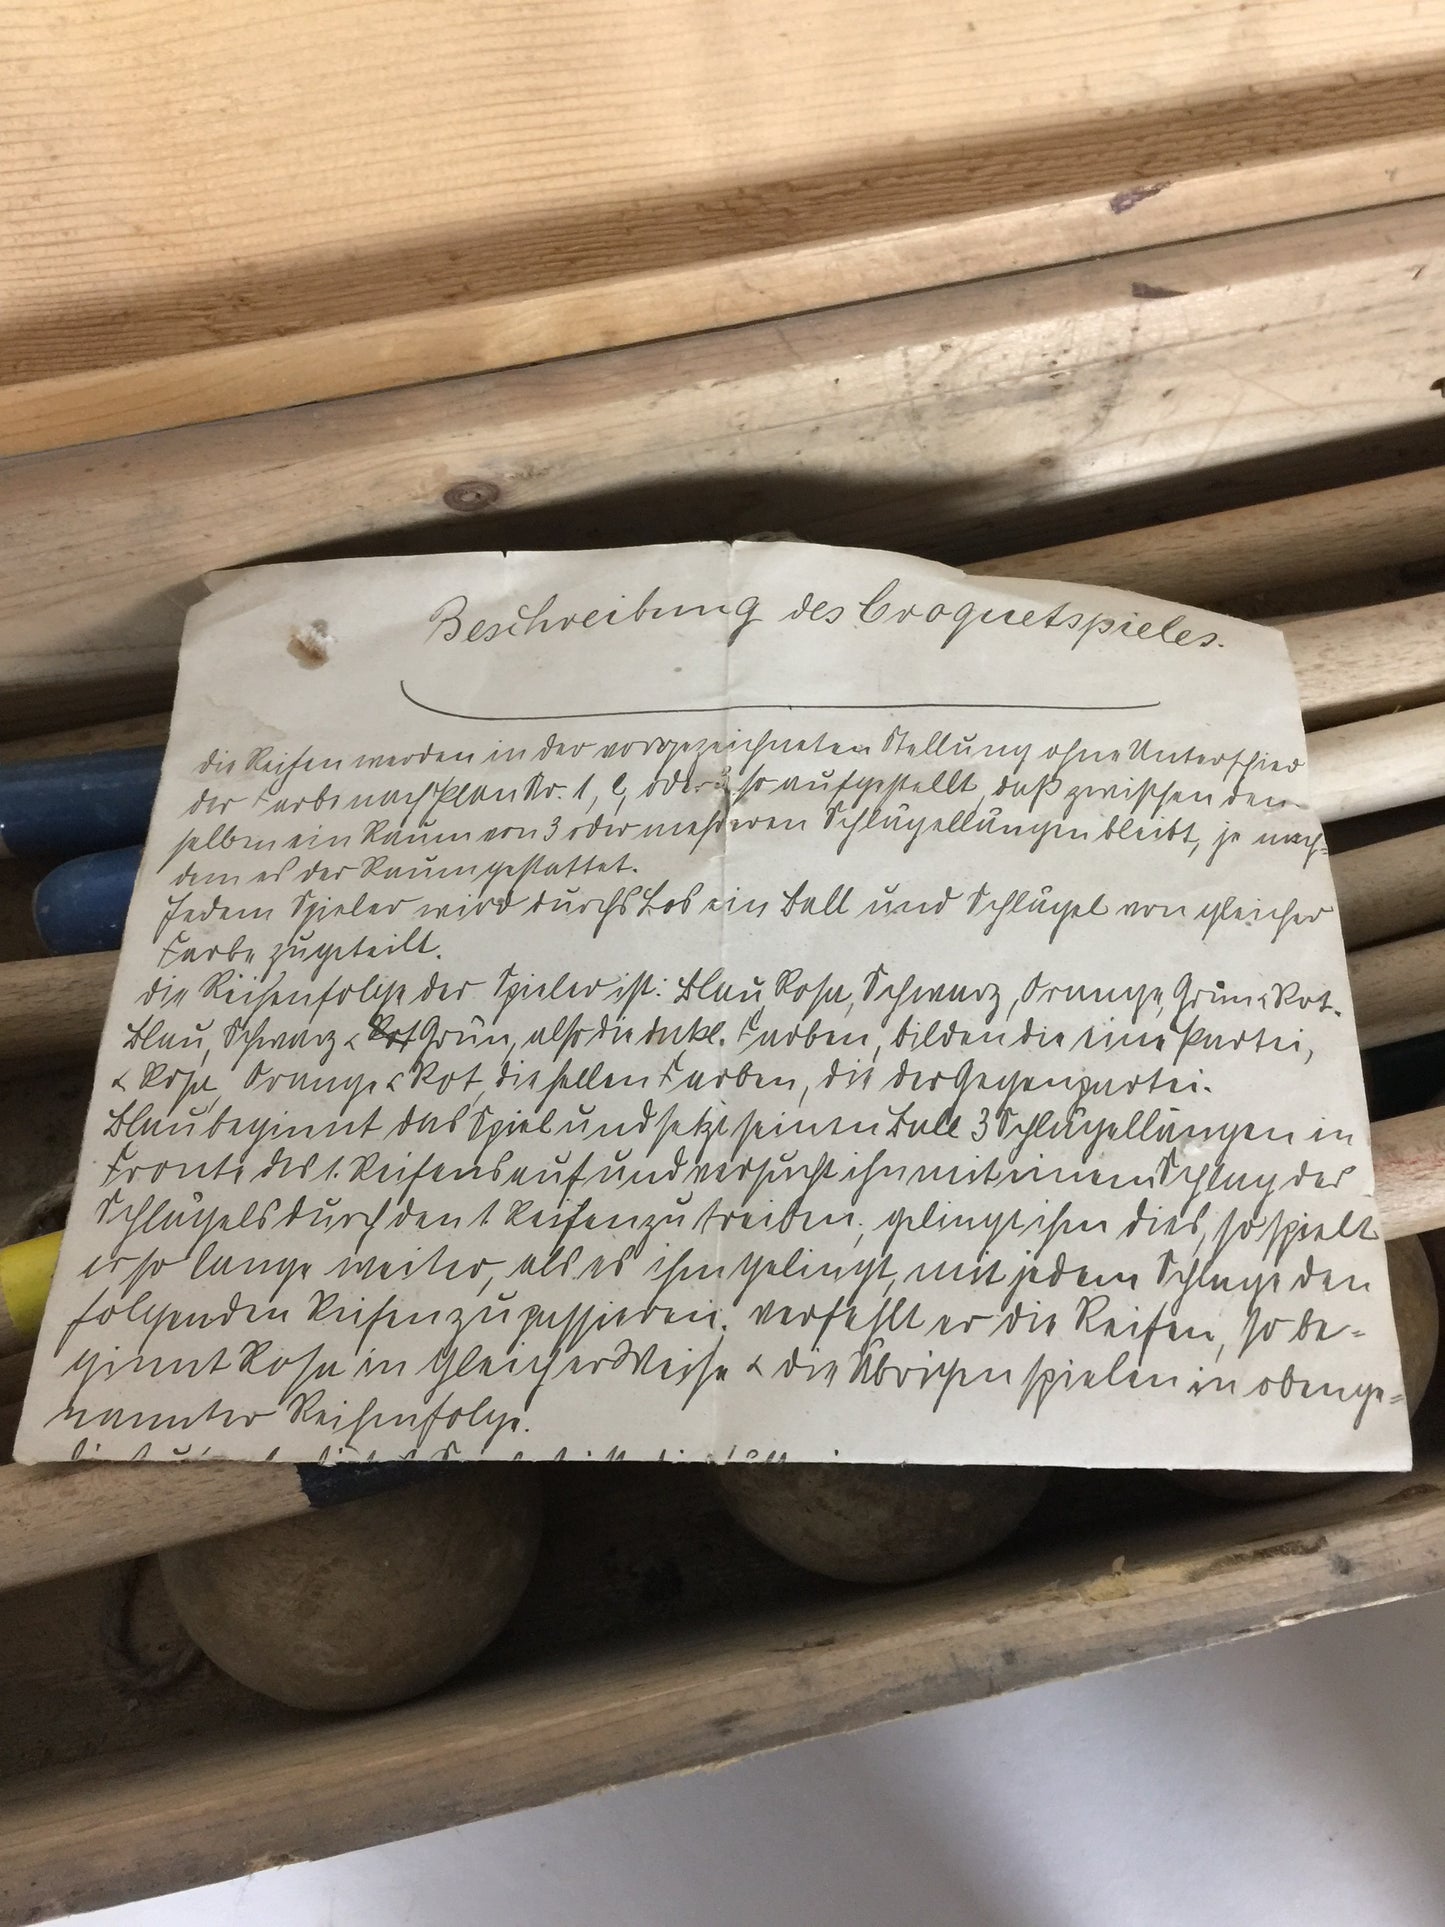 Beschreibung des Croquetspieles.
die Reifen werden in der vorgezeichneten Stellung ohne Unterschied
der Farbe nach Plan Nr. 1, 2, oder 3 so aufgestellt, daß zwischen den-
selben ein Raum von 3 oder mehreren Schlägellängen bleibt, je nach-
dem es der Raum gestattet.
Jedem Spieler wird durchs Los ein Ball und Schlägel von gleicher
Farbe zugeteilt.
die Reihenfolge der Spieler ist: Blau, Rosa, Schwarz, Orange, Grün & Rot.
Blau, Schwarz & Grün, also die dukl. Farben, bilden die eine Partei,
& Rosa, Orange & Rot, die hellen Farben, die der Gegenpartei.
Blau beginnt das Spiel und setzt seinen Ball 3 Schlägellängen in
Fronte des 1. Reifens auf und versucht ihn mit einem Schlag des
Schlägels durch den 1. Reifen zu treiben; gelingt ihm dies, so spielt
er so lange weiter, als es ihm gelingt, mit jedem Schlage den
folgenden Reifen zu passieren; verfehlt er die Reifen, so be-
ginnt Rosa in gleicher Weise & die Übrigen spielen in obenge-
nannter Reihenfolge.